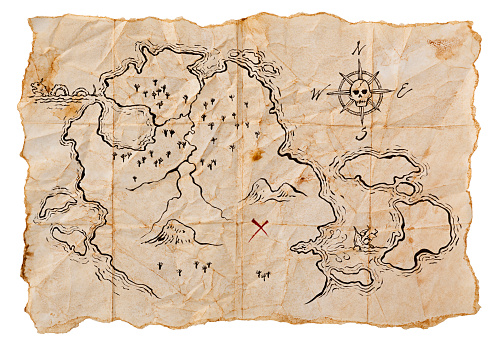 N
W E
S
X